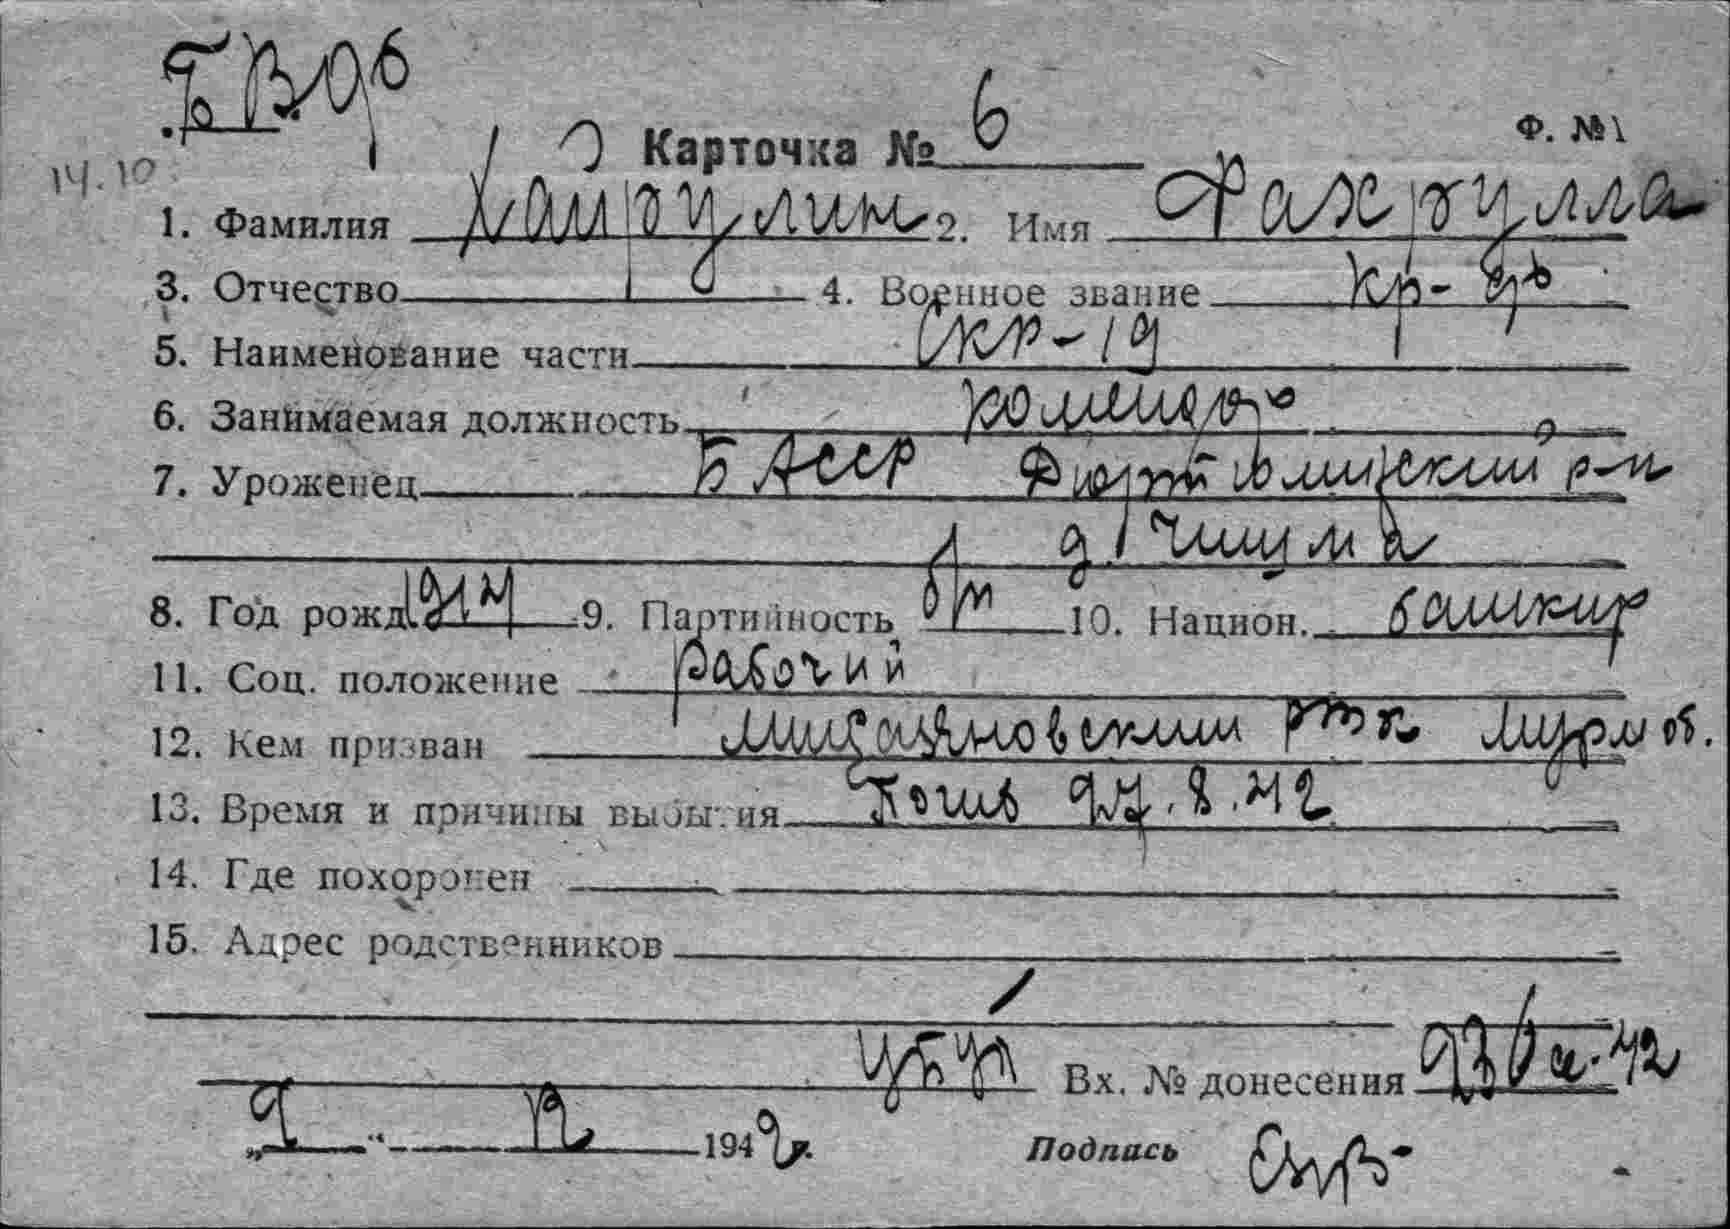 14.10
Карточка № 6 Ф. №1
1. Фамилия Хайрулин 2. Имя Фахрулла
3. Отчество 4. Военное звание кр-ец
5. Наименование части СКР-19
6. Занимаемая должность комендор
7. Уроженец БАССР Дюртюлинский р-н
д. Чишма
8. Год рожд. 1914 9. Партийность б/п 10. Национ. башкир
11. Соц. положение рабочий
12. Кем призван РВК Мурм об.
13. Время и причины выбытия Погиб 27.8.42
14. Где похоронен
15. Адрес родственников
Вх. № донесения
1942 г. Подпись